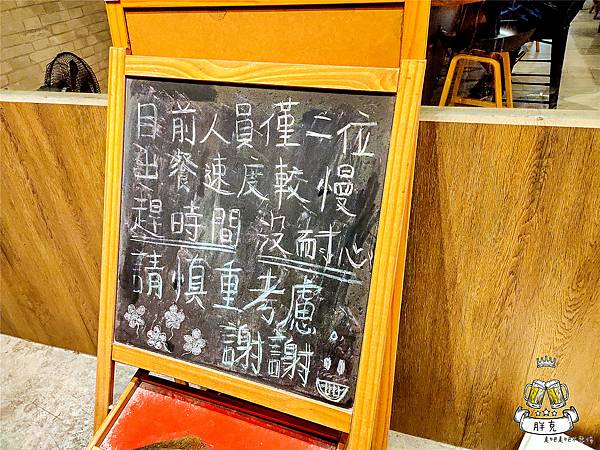 目前人員僅二位
出餐速度較慢
趕時間 沒耐心
請慎重考慮。
謝謝!!
胖克